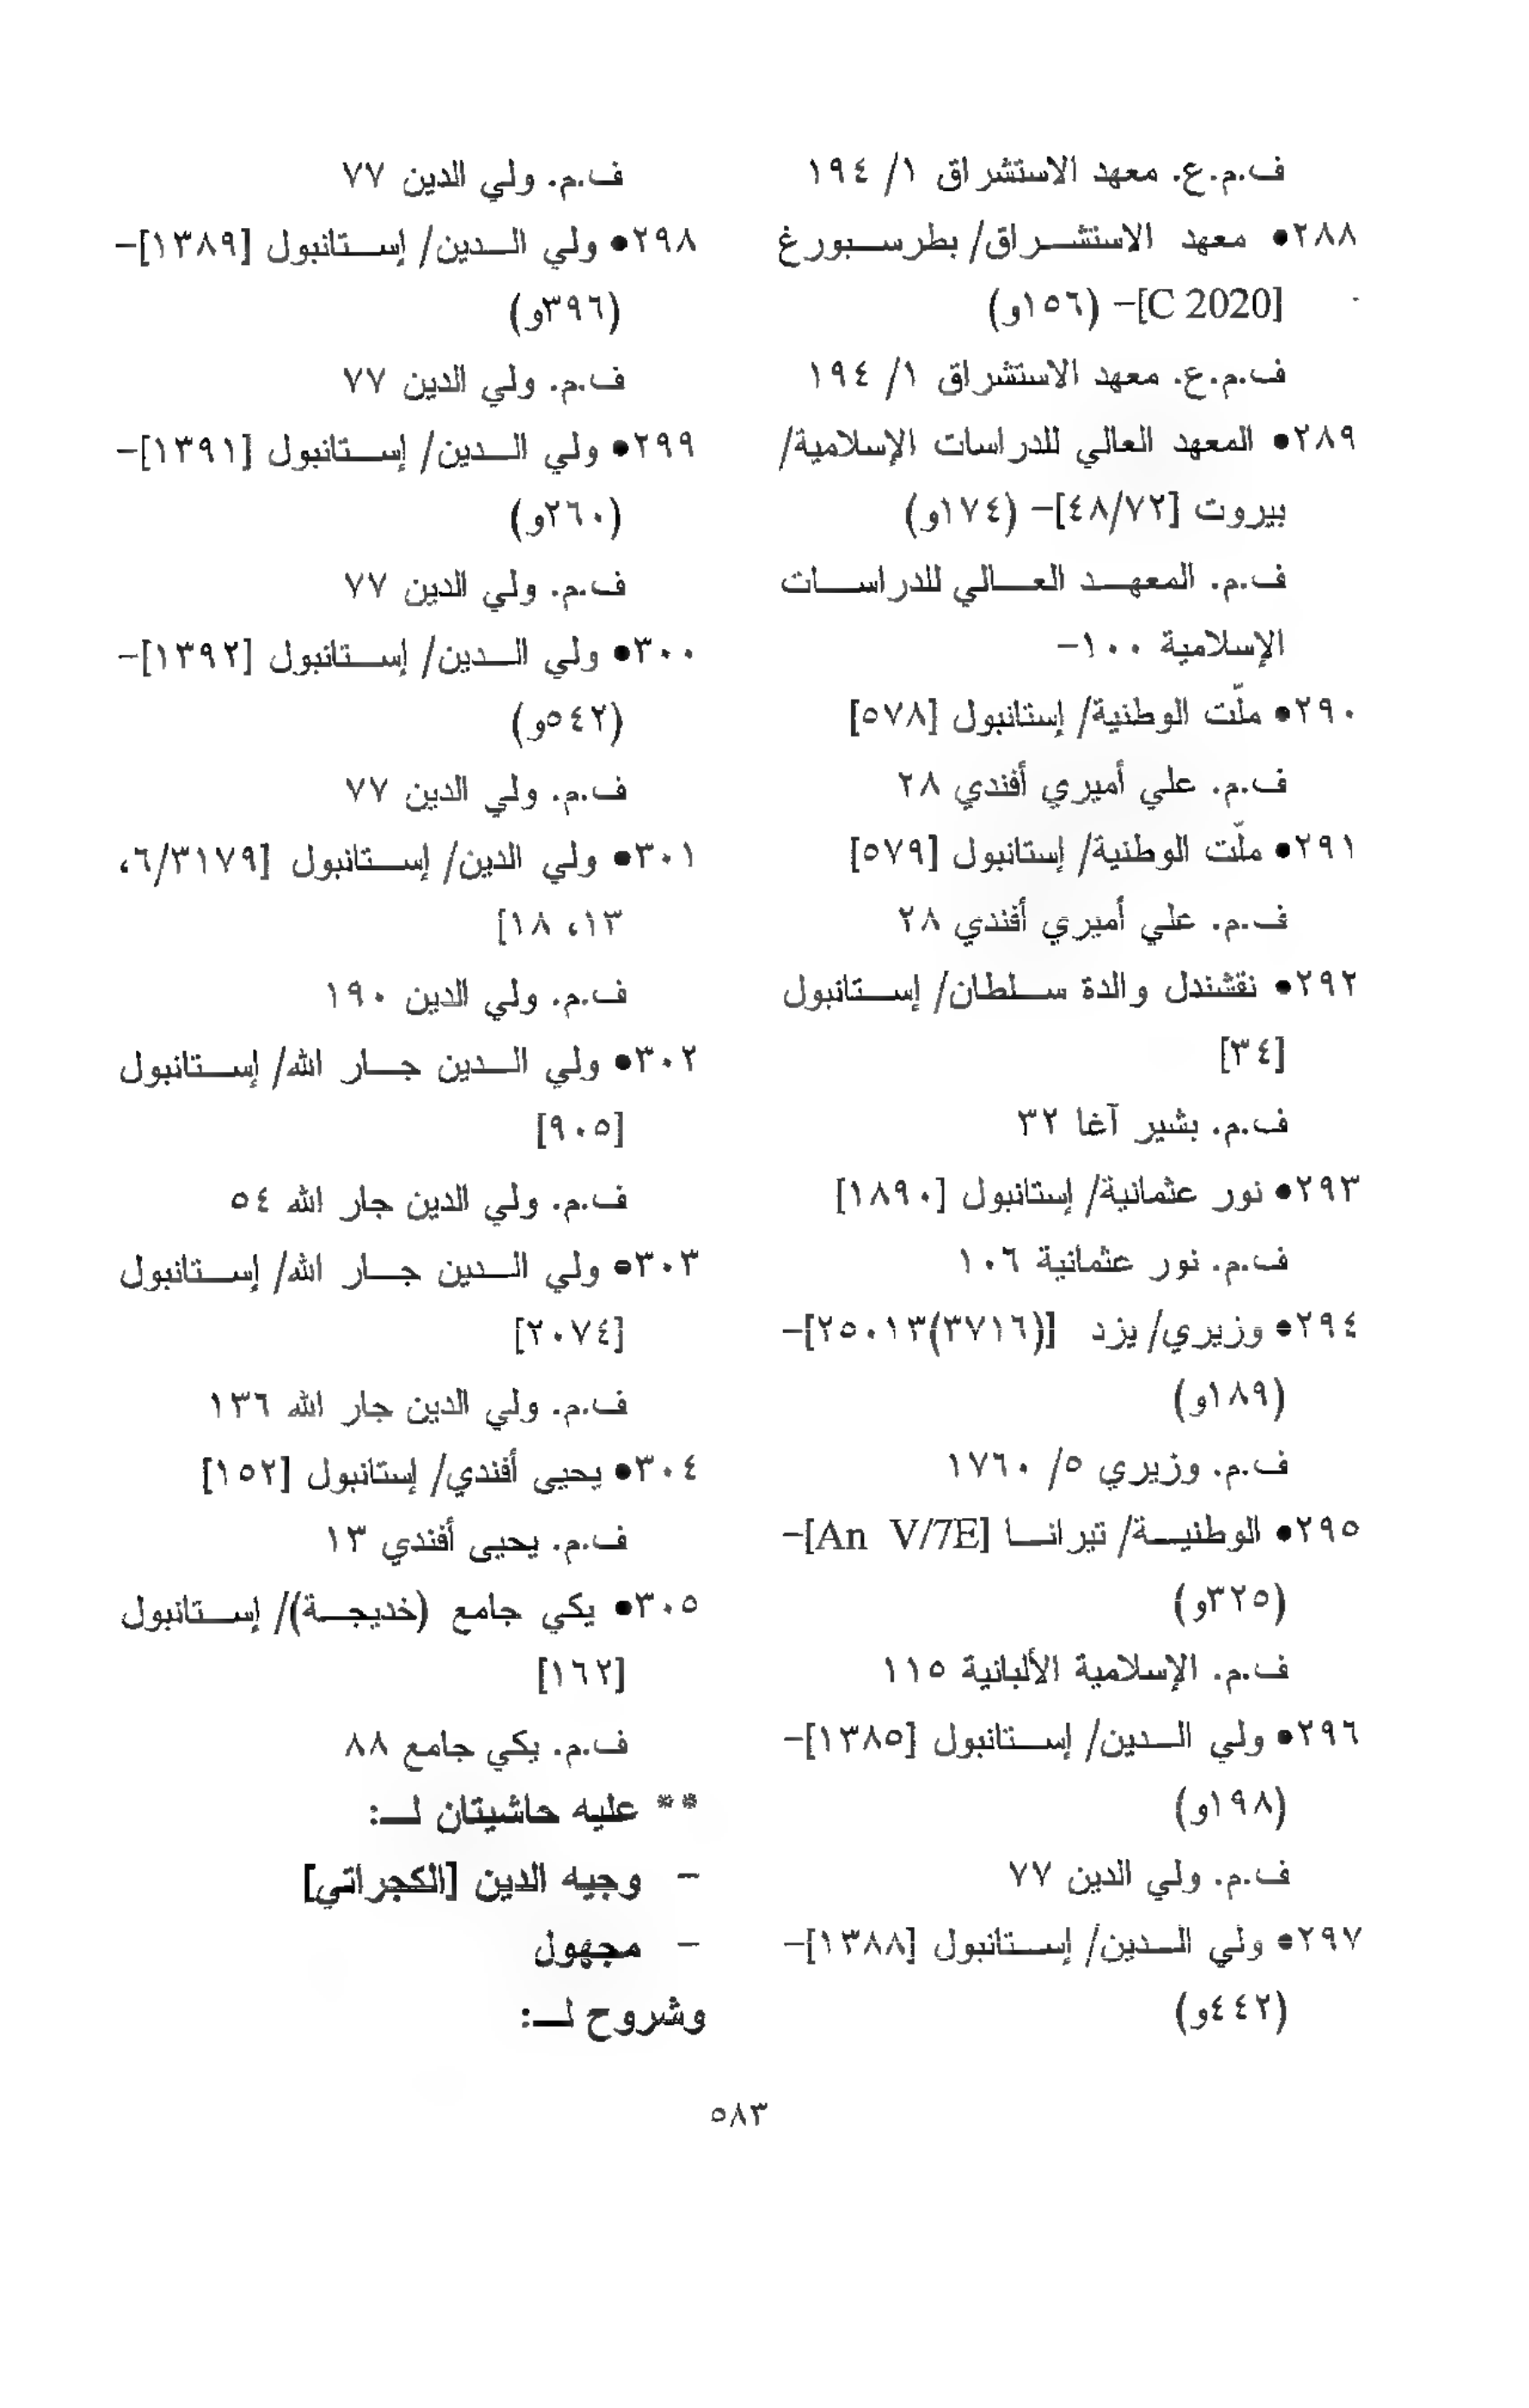 ف.م.ع. معهد الاستشراق ١/ ١٩٤
٢٨٨● معهد الاستشراق/ بطرسبورغ
[C 2020]– (١٥٦و)
ف.م.ع. معهد الاستشراق ١/ ١٩٤
٢٨٩● المعهد العالي للدراسات الإسلامية/
بيروت [٤٨/٧٢]– (١٧٤و)
ف.م. المعهد العالي للدراسات
الإسلامية ١٠٠–
٢٩٠● ملّت الوطنية/ إستانبول [٥٧٨]
ف.م. علي أميري أفندي ٢٨
٢٩١● ملّت الوطنية/ إستانبول [٥٧٩]
ف.م. علي أميري أفندي ٢٨
٢٩٢● نقشندل والدة سلطان/ إستانبول
[٣٤]
ف.م. بشير آغا ٣٢
٢٩٣● نور عثمانية/ إستانبول [١٨٩٠]
ف.م. نور عثمانية ١٠٦
٢٩٤● وزيري/ يزد [(٣٧١٦)٢٥٠١٣]–
(١٨٩و)
ف.م. وزيري ٥/ ١٧٦٠
٢٩٥● الوطنية/ تيرانا [An V/7E]–
(٣٢٥و)
ف.م. الإسلامية الألبانية ١١٥
٢٩٦● ولي الدين/ إستانبول [١٣٨٥]–
(١٩٨و)
ف.م. ولي الدين ٧٧
٢٩٧● ولي الدين/ إستانبول [١٣٨٨]–
(٤٤٢و)
ف.م. ولي الدين ٧٧
٢٩٨● ولي الدين/ إستانبول [١٣٨٩]–
(٣٩٦و)
ف.م. ولي الدين ٧٧
٢٩٩● ولي الدين/ إستانبول [١٣٩١]–
(٢٦٠و)
ف.م. ولي الدين ٧٧
٣٠٠● ولي الدين/ إستانبول [١٣٩٢]–
(٥٤٢و)
ف.م. ولي الدين ٧٧
٣٠١● ولي الدين/ إستانبول [٦/٣١٧٩،
١٣، ١٨]
ف.م. ولي الدين ١٩٠
٣٠٢● ولي الدين جار الله/ إستانبول
[٩٠٥]
ف.م. ولي الدين جار الله ٥٤
٣٠٣● ولي الدين جار الله/ إستانبول
[٢٠٧٤]
ف.م. ولي الدين جار الله ١٣٦
٣٠٤● يحيى أفندي/ إستانبول [١٥٢]
ف.م. يحيى أفندي ١٣
٣٠٥● يكي جامع (خديجة)/ إستانبول
[١٦٢]
ف.م. يكي جامع ٨٨
** عليه حاشيتان لـ:
– وجيه الدين [الكجراتي]
– مجهول
وشروح لـ:
٥٨٣